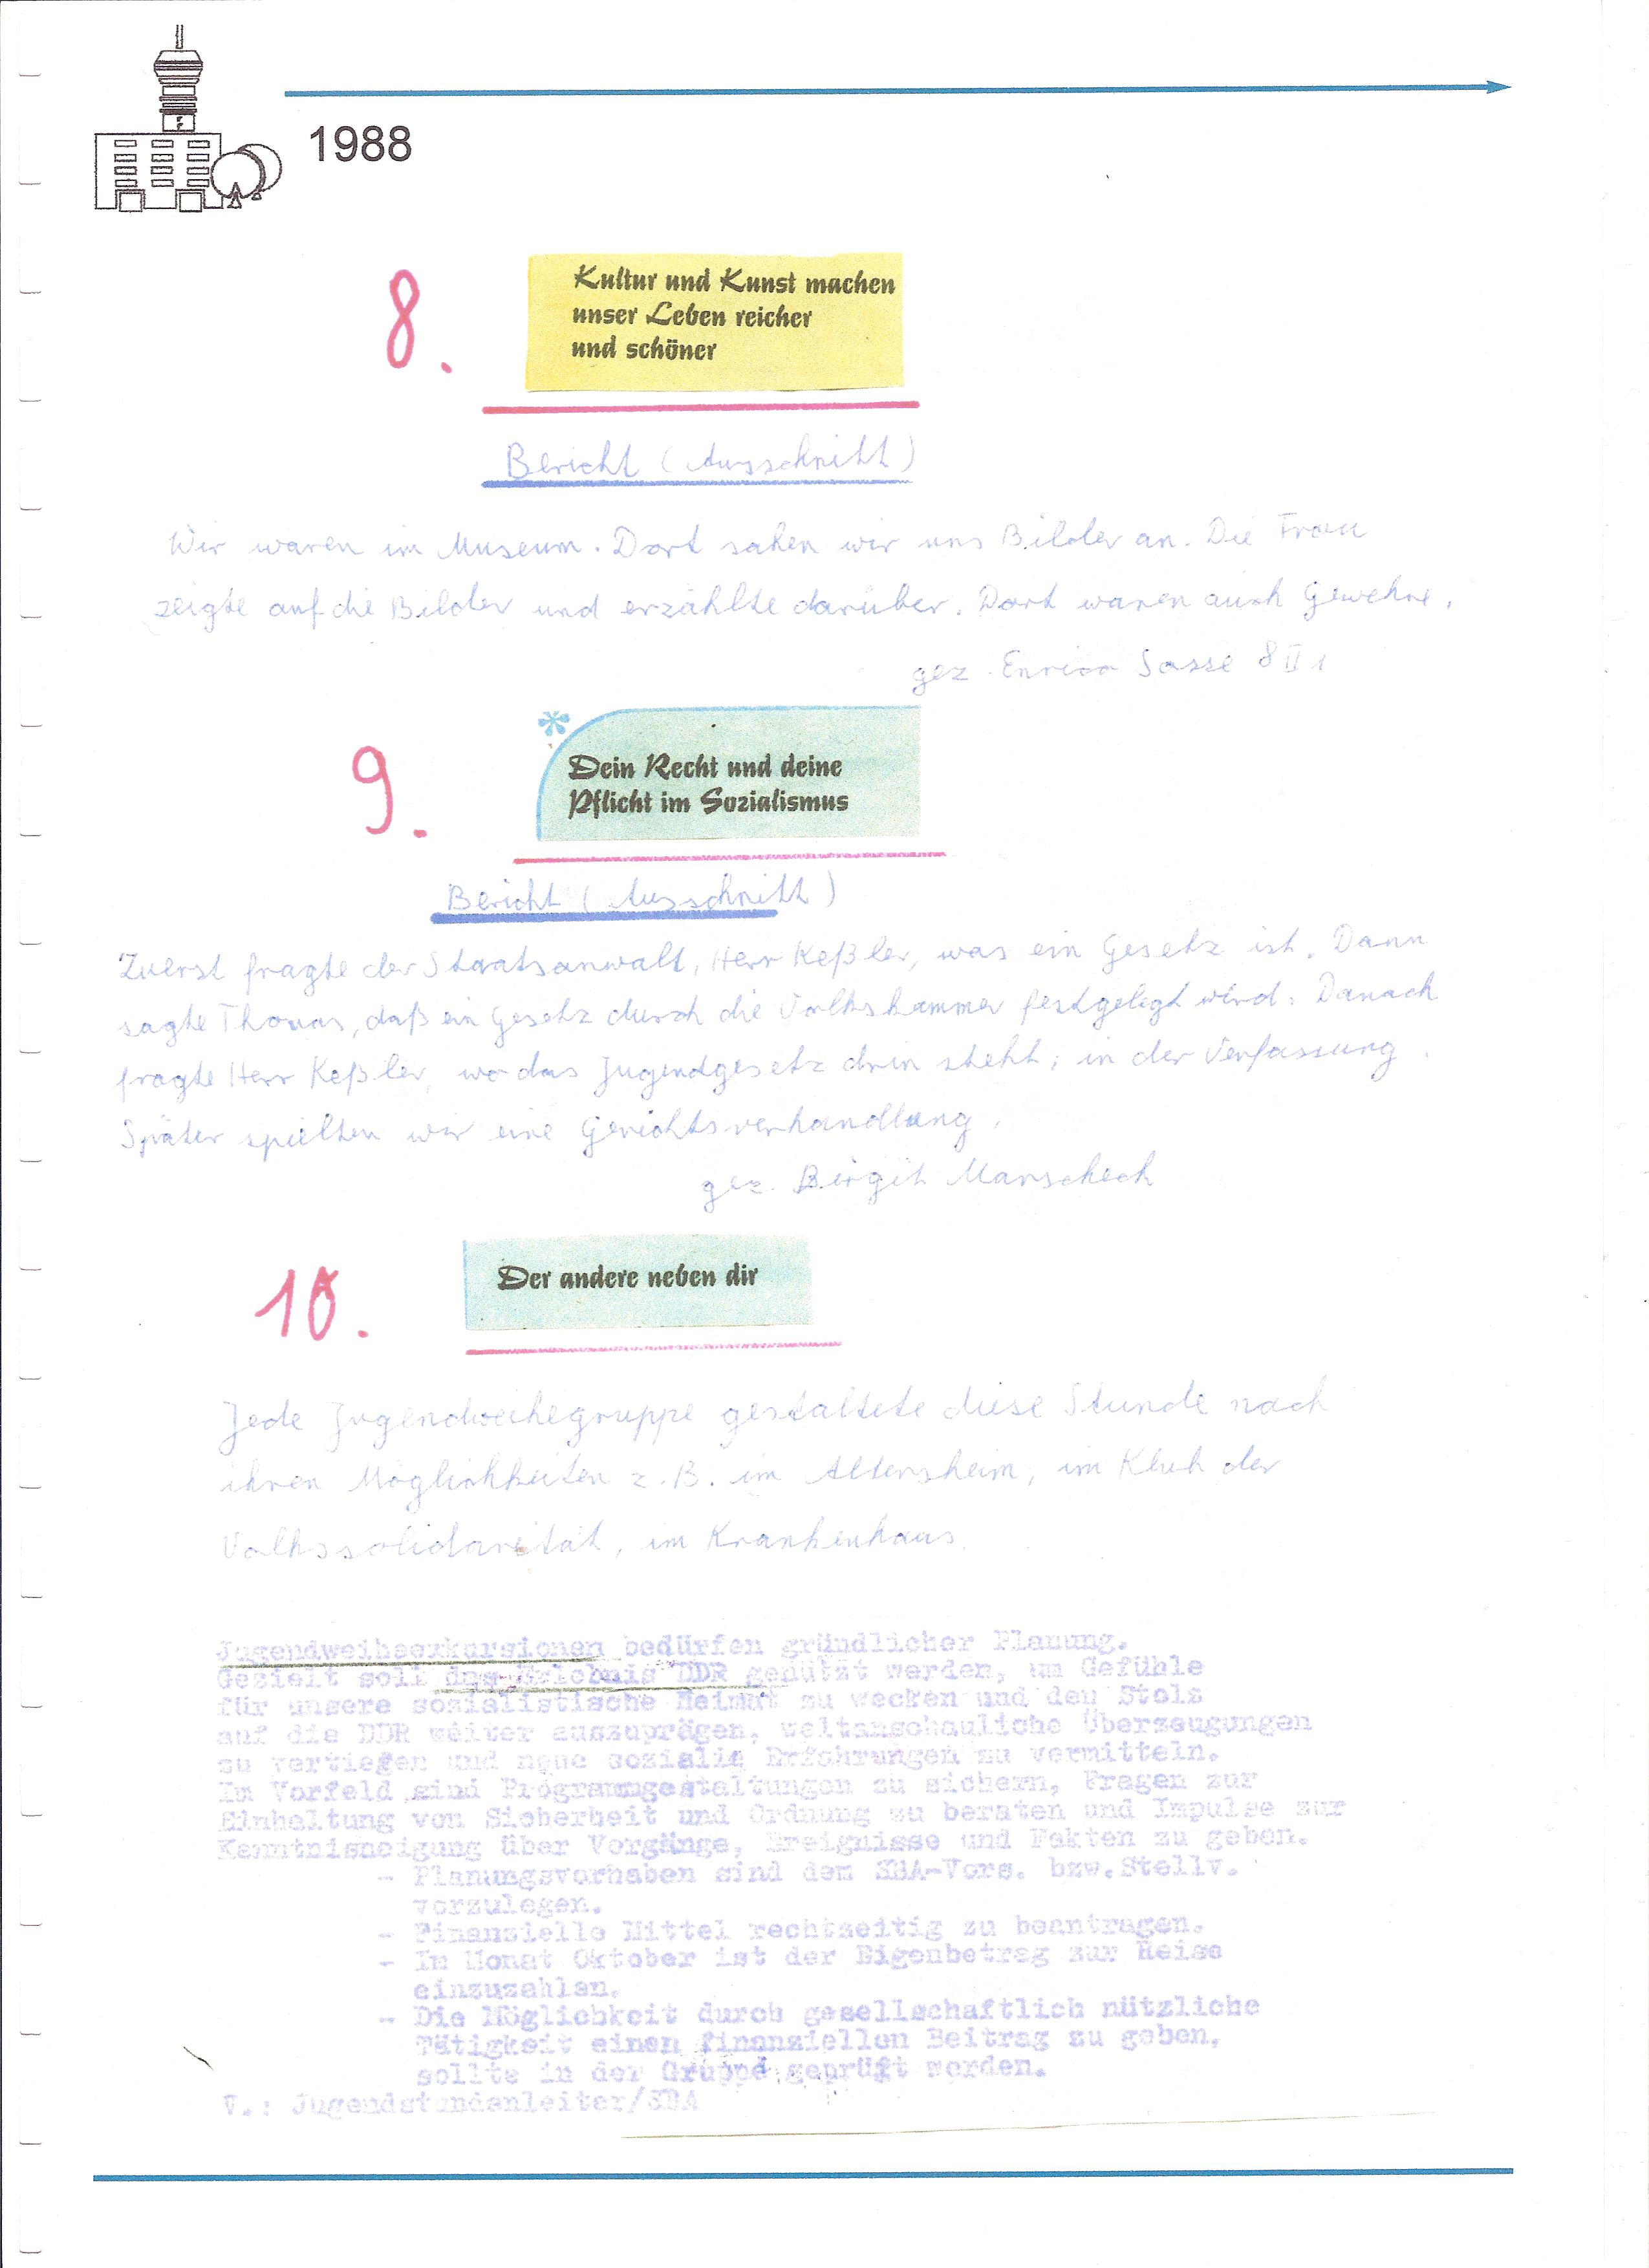 1988
8.
Kultur und Kunst machen
unser Leben reicher
und schöner
Bericht (Ausschnitt)
Wir waren im Museum. Dort sahen wir uns Bilder an. Die Frau
zeigte auf die Bilder und erzählte darüber. Dort waren auch Gewehre.
gez. Enrico Sasse 8 II 1
9.
Dein Recht und deine
Pflicht im Sozialismus
Bericht (Ausschnitt)
Zuerst fragte der Staatsanwalt, Herr Keßler, was ein Gesetz ist. Dann
sagte Thomas, daß ein Gesetz durch die Volkskammer festgelegt wird. Danach
fragte Herr Keßler, wo das Jugendgesetz drin steht; in der Verfassung.
Später spielten wir eine Gerichtsverhandlung.
gez. Birgit Marscheck
10.
Der andere neben dir
Jede Jugendweihegruppe gestaltete diese Stunde nach
ihren Möglichkeiten z.B. im Altersheim, im Klub der
Volkssolidarität, im Krankenhaus.
Jugendweiheexkursionen bedürfen gründlicher Planung.
Gezielt soll das Erlebnis DDR genutzt werden, um Gefühle
für unsere sozialistische Heimat zu wecken und den Stolz
auf die DDR weiter auszuprägen, weltanschauliche Überzeugungen
zu vertiefen und neue soziale Erfahrungen zu vermitteln.
Im Vorfeld sind Programmgestaltungen zu sichern, Fragen zur
Einhaltung von Sicherheit und Ordnung zu beraten und Impulse zur
über Vorgänge, Ereignisse und Fakten zu geben.
- Planungsvorhaben sind dem SBA-Vors. bzw. Stellv.
vorzulegen.
- Finanzielle Mittel rechtzeitig zu beantragen.
- Im Monat Oktober ist der Eigenbetrag zur Reise
einzuzahlen.
- Die Möglichkeit durch gesellschaftlich nützliche
Tätigkeit einen finanziellen Beitrag zu geben,
sollte in der Gruppe geprüft werden.
V.: Jugendstundenleiter/SBA